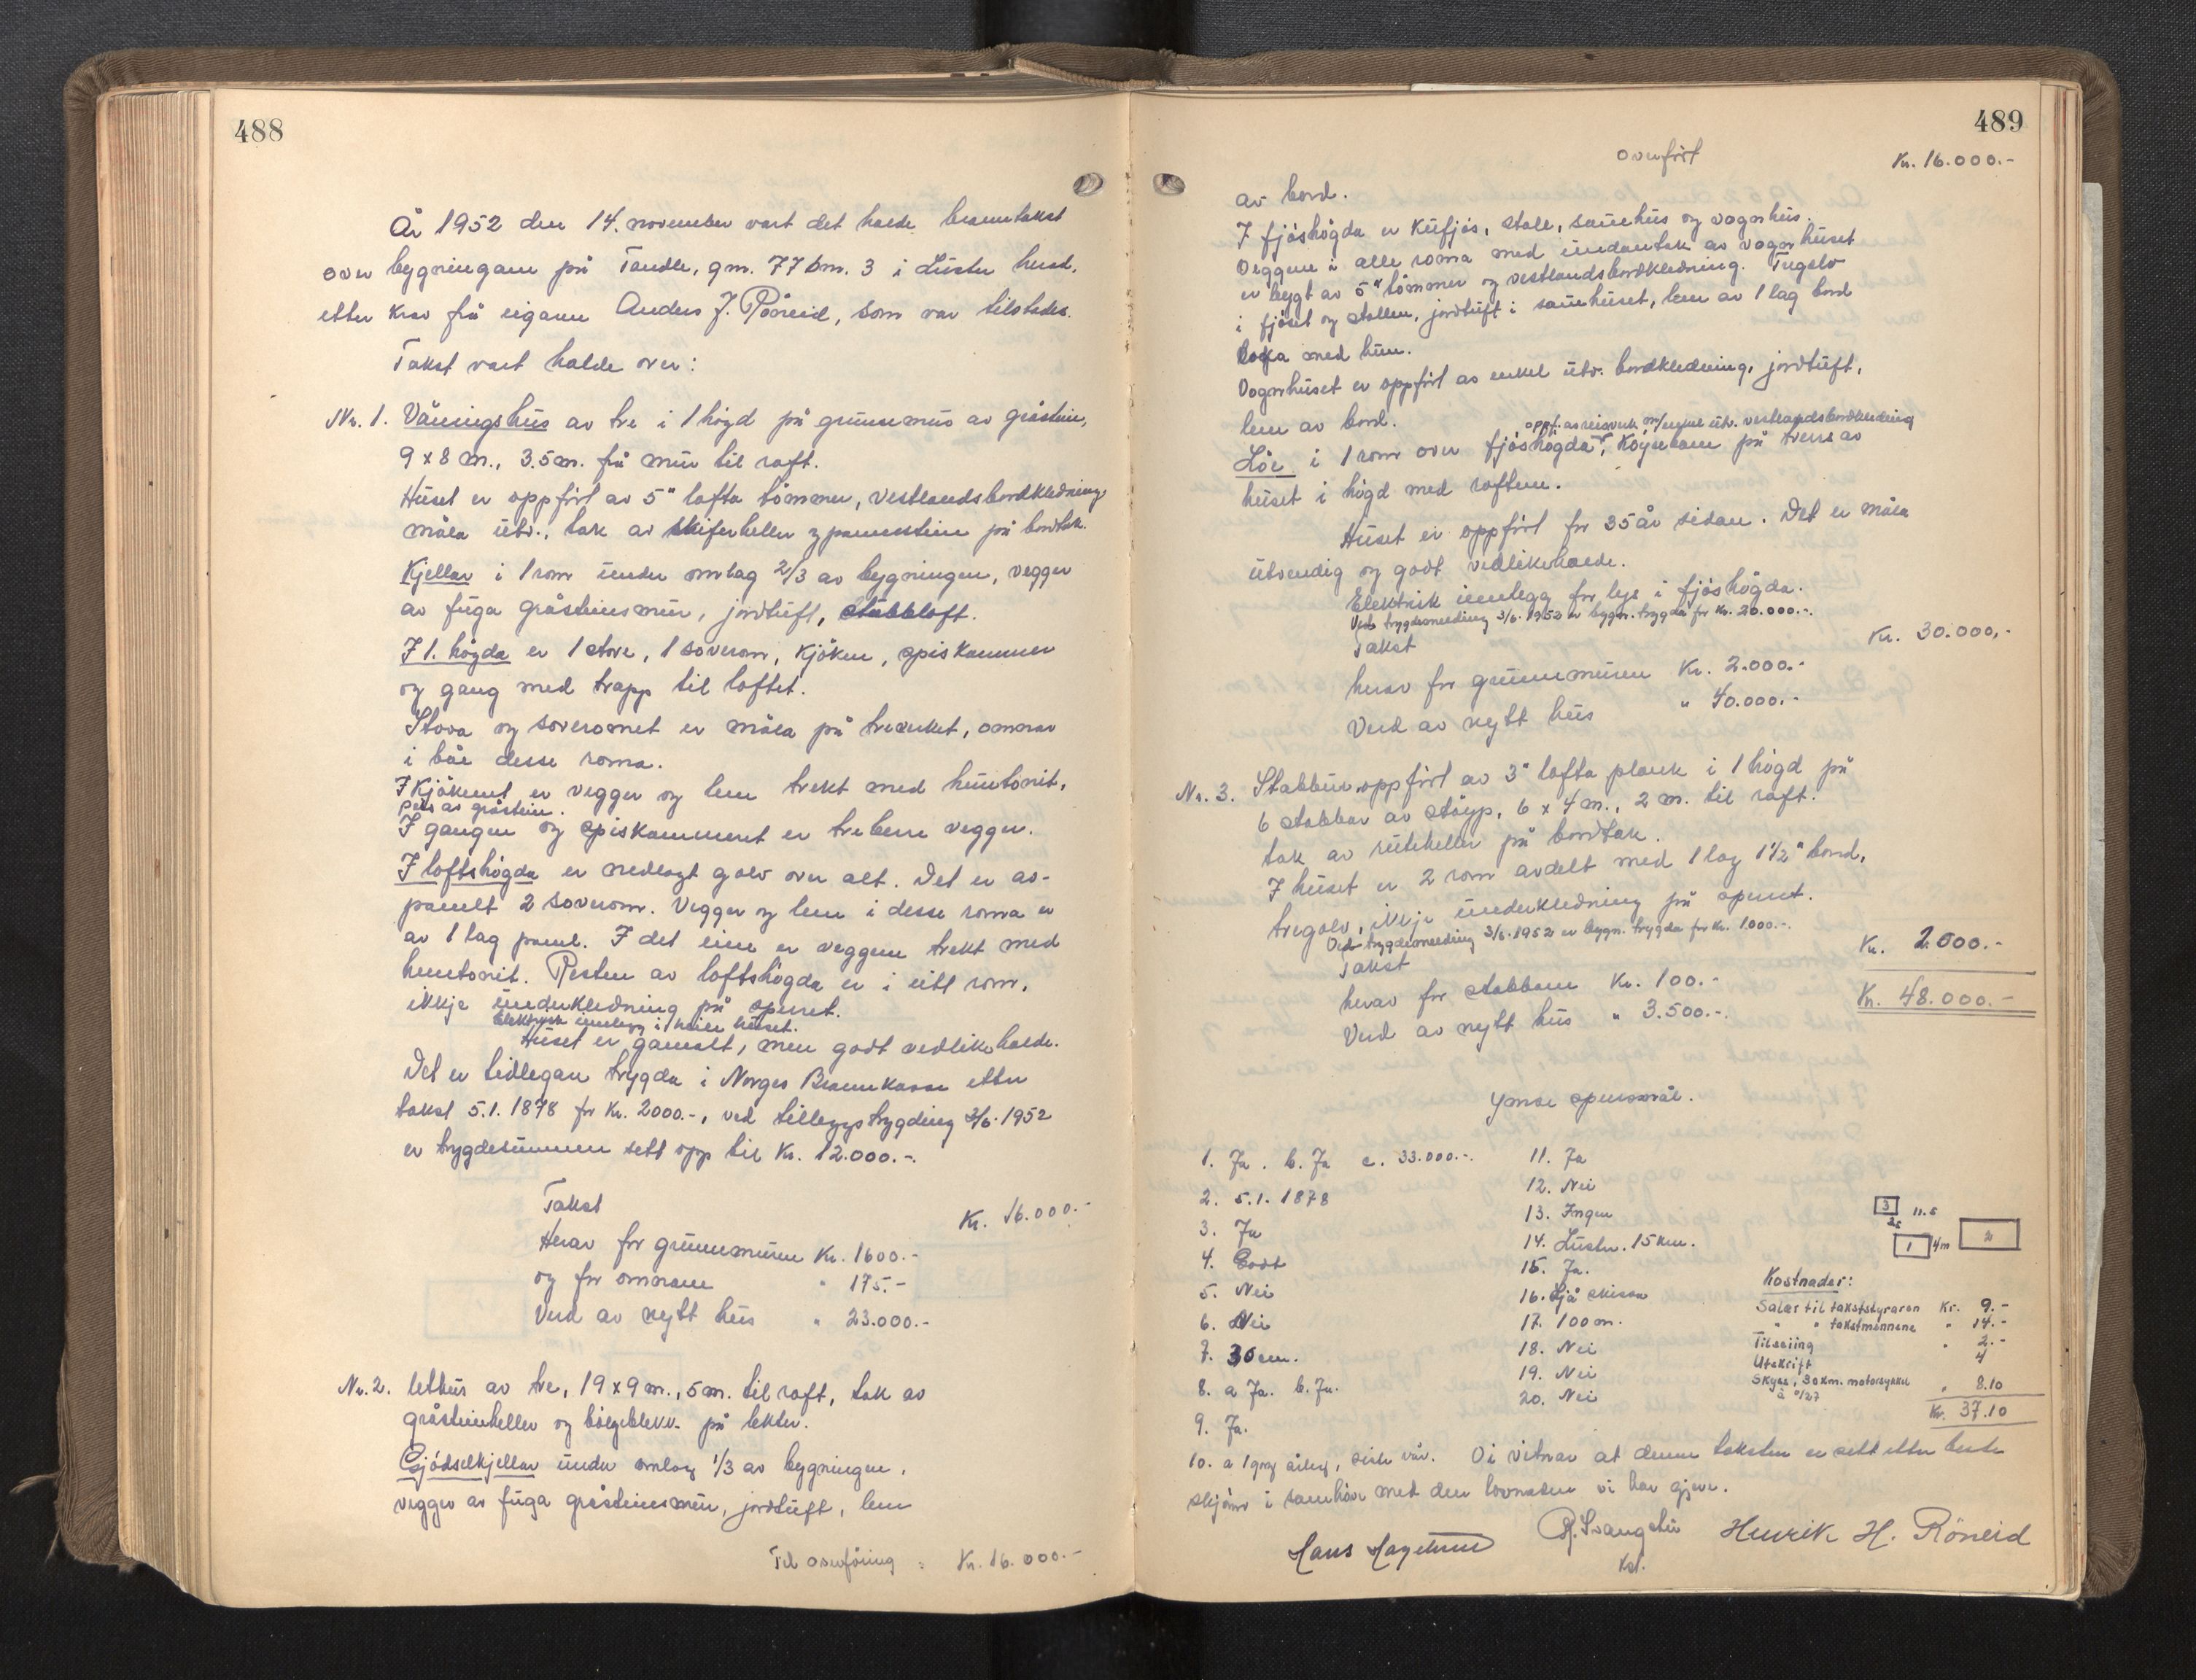 488
År 1952 den 14. november vart det halde branntakst
over bygningane på Tandle, gm. 77 bm. 3 i Luster herad,
etter krav frå eigaren Anders J. Röneid, som var tilstades.
Takst vart halde over:
Nr. 1. Våningshus av tre i 1 högd på grunnmur av gråstein,
9 x 8 m., 3.5 m. frå mur til raft.
Huset er oppfört av 5" lafta tömmer, vestlandsbordkledning
måla utv., tak av skiferheller og pannestein på bordtak.
Kjellar i 1 rom under omlag 2/3 av bygningen, vegger
av fuga gråsteinsmur, jordtuft, stubbloft.
I 1. högda er 1 stove, 1 soverom, kjöken, spiskammer
og gang med trapp til loftet.
Stova og soveromet er måla på treverket, omnar
i båe desse roma.
I kjökenet er vegger og lem trekt med huntonit,
peis av gråstein.
I gangen og spiskammeret er treberre vegger.
I loftshögda er nedlagt golv over alt. Det er av-
panelt 2 soverom. Vegger og lem i desse roma er
av 1 lag panel. I det eine er veggene trekt med
huntonit. Resten av loftshögda er i eitt rom,
ikkje underkledning på sperret.
Elektrisk innlegg i heile huset.
Huset er gamalt, men godt vedlikehalde.
Det er tidlegare trygda i Norges Brannkasse etter
takst 5.1. 1878 for kr. 2000.-, ved tilleggstrygding 3/6. 1952
er trygdesummen sett opp til kr. 12.000.-.
Takst
Kr. 16.000.-
Herav for grunnmuren Kr. 1600.-
og for omnane " 175.-
Verd av nytt hus " 23.000.-
Nr. 2. Uthus av tre, 19 x 9 m., 5 m. til raft, tak av
gråsteinheller og bölgeblekk på lekter.
Gjödselkjellar under omlag 1/3 av bygningen,
vegger av fuga gråsteinsmur, jordtuft, lem
Til overföring : Kr. 16.000.-
489
overfört Kr. 16.000.-
av bord.
I fjöshögda er kufjös, stall, sauehus og vognhus.
Veggene i alle roma med undantak av vognhuset
er bygt av 5" tömmer og vestlandsbordkledning. Tregolv
i fjöset og stallen, jordtuft i sauehuset, lem av 1 lag bord
med hun.
Vognhuset er oppfört av enkel utv. bordkledning, jordtuft,
lem av bord.
oppf. av reisverk m/enkel utv. vestlandsbordkledning
Löe i 1 rom over fjöshögda, köyrebane på tvers av
huset i högd med raftene.
Huset er oppfört for 35 år sidan. Det er måla
utvendig og godt vedlikehalde.
Elektrisk innlegg for lys i fjöshögda.
Ved trygdemelding 3/6. 1952 er bygn. trygda for Kr. 20.000.-.
Takst
Kr. 30.000.-
herav for grunnmuren Kr. 2.000.-
Verd av nytt hus " 40.000.-
Nr. 3. Stabbur oppfört av 3" lafta plank i 1 högd på
6 stabbar av stöyp, 6 x 4 m., 2 m. til raft.
tak av ruteheller på bordtak.
I huset er 2 rom avdelt med 1 lag 1 1/2" bord,
tregolv, ikkje underkledning på sperret.
Ved trygdemelding 3/6. 1952 er bygn. trygda for kr. 1.000.-.
Takst
Kr. 2.000.-
herav for stabbane Kr. 100.-
Kr. 48.000.-
Verd av nytt hus " 3.500.-.
Ymse spursmål.
1. Ja. b. Ja c. 33.000.-.
2. 5.1. 1878
3. Ja
4. Godt
5. Nei
6. Nei
7. 30 cm.
8. a Ja. b. Ja.
9. Ja.
10. a 1 gong årleg, siste vår.
11. Ja
12. Nei
13. Ingen
14. Luster. 15 km.
15. Ja.
16. Sjå skissa
17. 100 m.
18. Nei
19. Nei
20. Nei
3 11.5
25
1 4m 2
Kostnader:
Salær til takststyraren Kr. 9.-
" " takstmennene " 14.-
Tilseiing " 2.-
Utskrift 4
Skyss, 30 km. motorsykkel
à 0/27 " 8.10
Kr. 37.10
Vi vitnar at denne taksten er sett etter beste
skjönn i samhöve med den lovnaden vi har gjeve.
Hans
Henrik H. Röneid